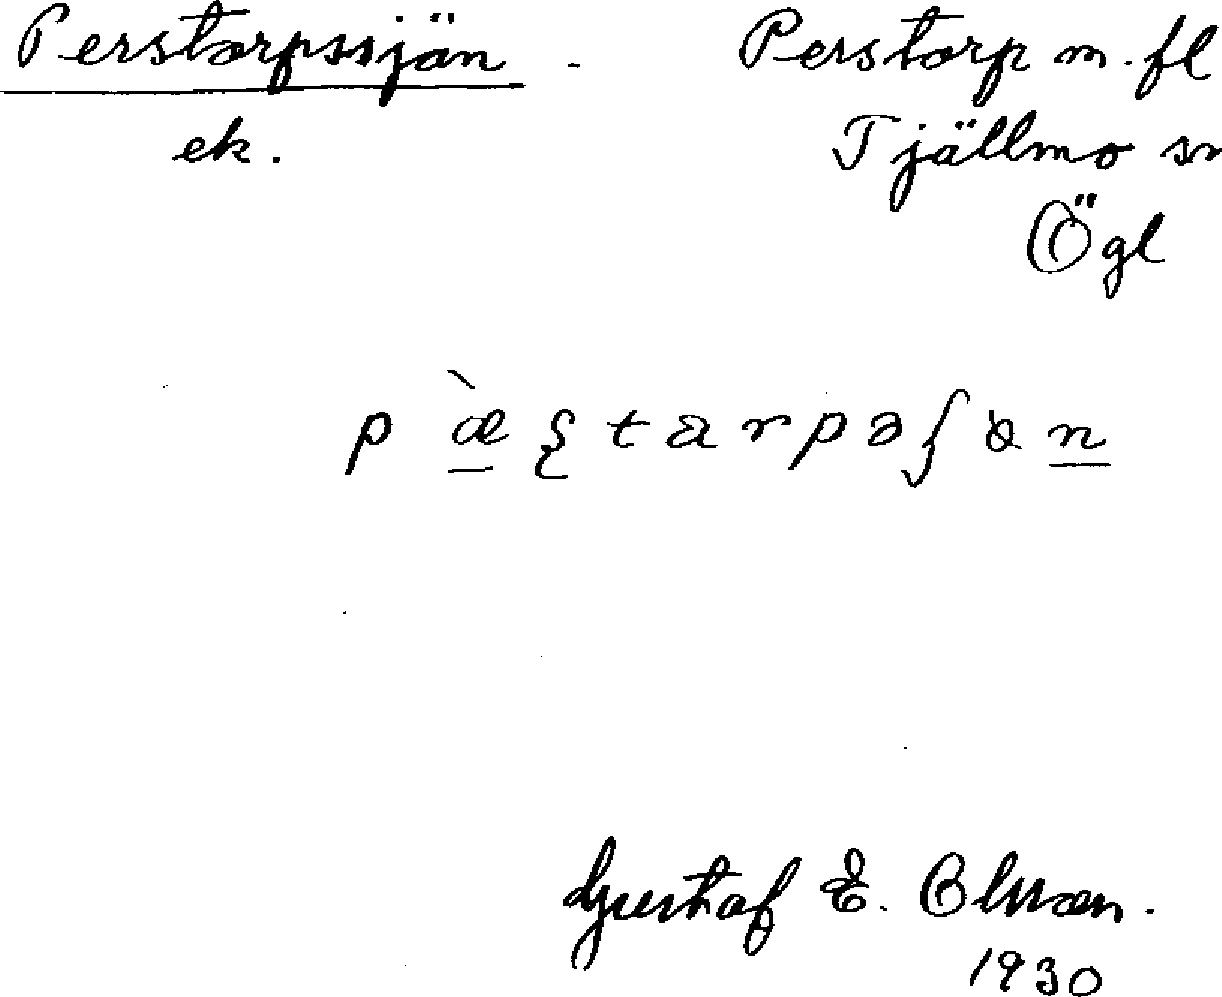 Perstorpssjön - Perstorp m. fl
ek. Tjällmo sn
Ögl
Gustaf E. Olsson.
1930